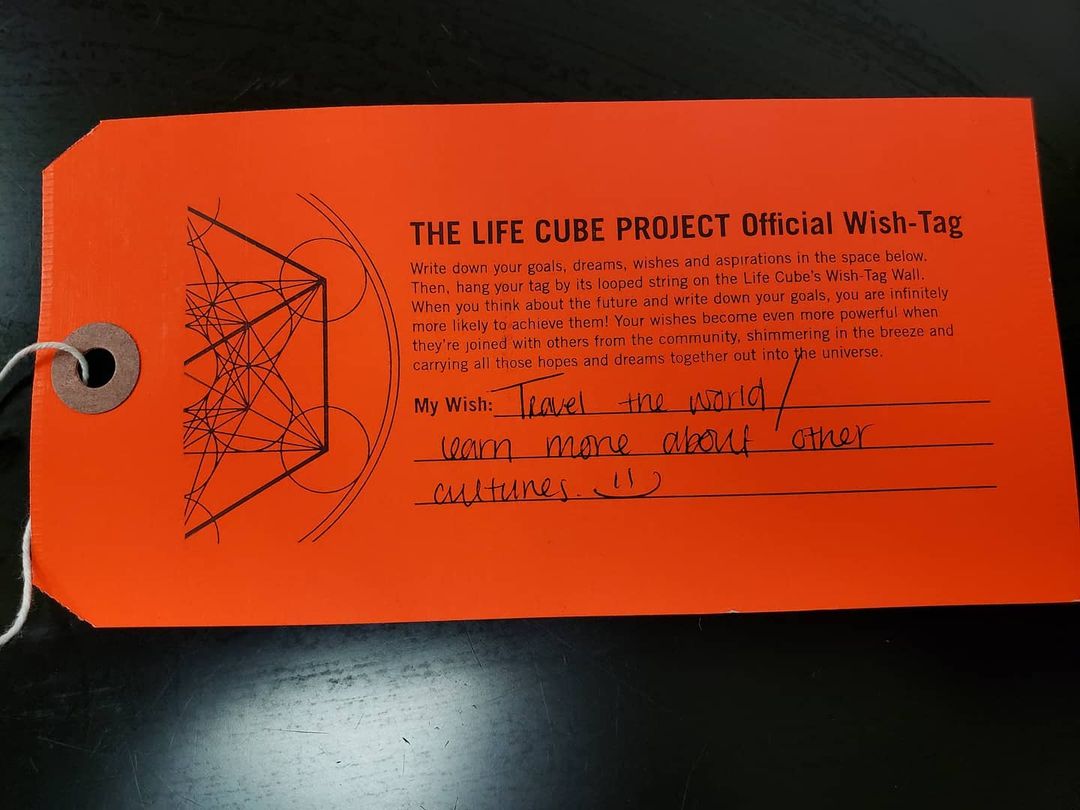 THE LIFE CUBE PROJECT Official Wish-Tag
Write down your goals, dreams, wishes and aspirations in the space below.
Then, hang your tag by its looped string on the Life Cube's Wish-Tag Wall.
When you think about the future and write down your goals, you are infinitely
more likely to achieve them! Your wishes become even more powerful when
they're joined with others from the community, shimmering in the breeze and
carrying all those hopes and dreams together out into the universe.
My Wish: Travel the world/
learn more about other
cultures. :)